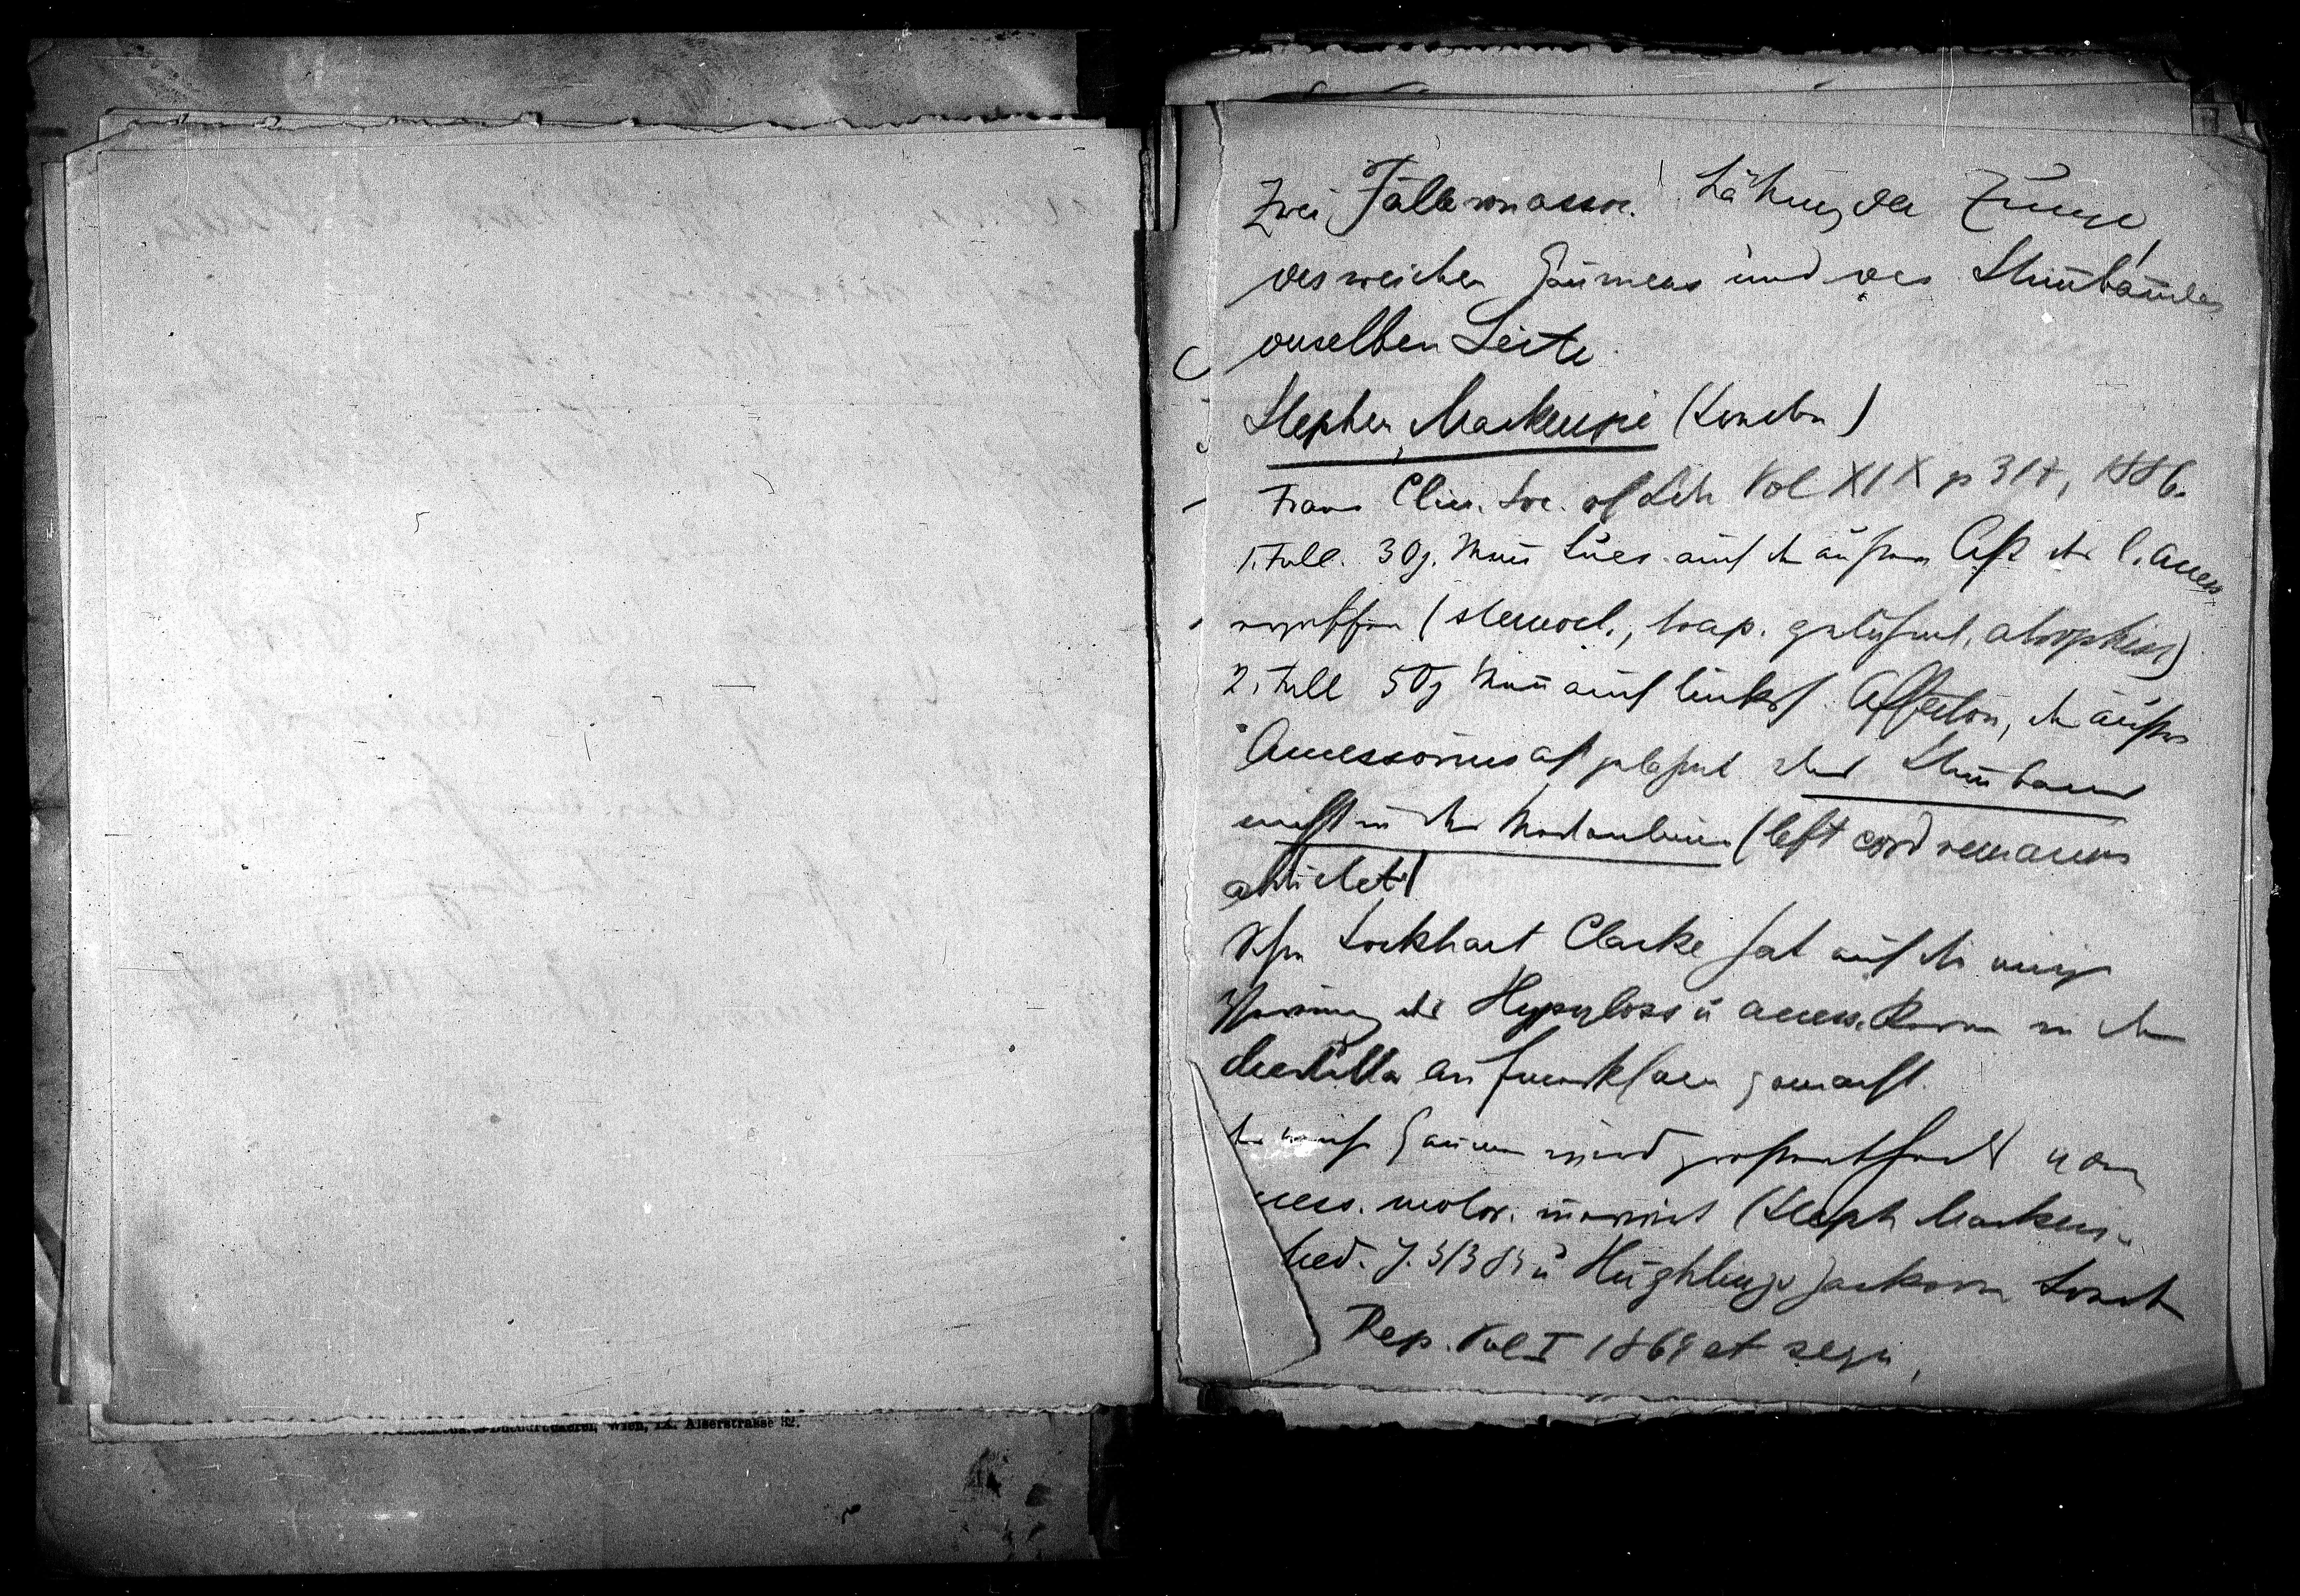 Wien, IX. Alserstrasse 32.
Zwei Fälle von assoc. Lähmung der Zunge
des weichen Gaumens und des Stimbandes
derselben Seite
Stephen Mackenzie (London)
Trans Clin. Soc. of Ldn Vol XIX p 317, 1886.
1. Fall. 30j. Mann Lues auch der äußere Ast des l. Access
ergriffen (sternocl., trap. gelähmt, atrophisch)
2. Fall 50j Mann auch links Affection, der äußere
Accessoriusast gelähmt das Stimband
nicht in der Medianlinie (left cord remains
abducted)
Schon Lockhart Clarke hat auf die
des Hypogloss u access. in der
Medulla aufmerksam gemacht.
Gaumen wird vom
motor. innervirt (Steph Mackenzie
Med. J. 3/3 83 u Hughlings Jackson London
Rep. Vol I 1864 et sequ,